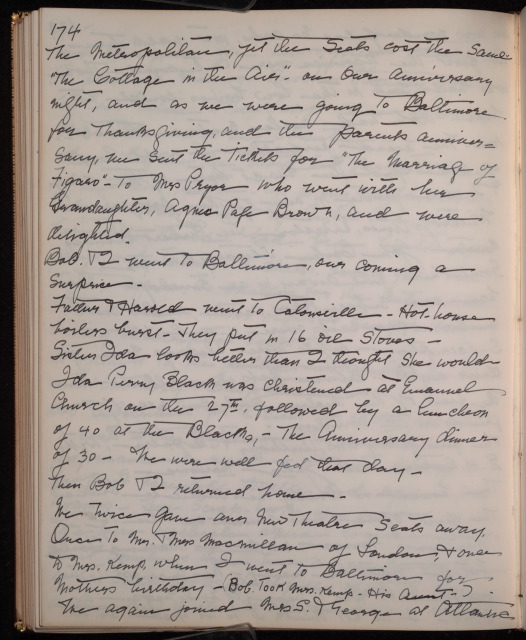 174
The Metropolitan, yet the Seats cost the Same.
"The Cottage in the Air" - on our anniversary
night, and as we were going to Baltimore
for Thanksgiving, and the parents anniver=
sary, we sent the Tickets for "The Marriage of
Figaro" - to Mrs Pryor who went with her
Grandaughter, Agnes Page Brown, and were
delighted.
Bob. & I went to Baltimore, our coming a
surprise -
Father & Harold went to Catonsville - Hot-house
boilers burst - They put in 16 oil Stoves -
Sister Ida looks better than I thought She would
Ida Perry Black was christened at Emanuel
Church on the 27th. followed by a luncheon
of 40 at the Blacks, - The Anniversary dinner
of 30 - We were well fed that day -
Then Bob & I returned home -
We twice gave our New Theatre Seats away,
Once to Mr. & Mrs Macmillan of London, & once
to Mrs. Kemp, when I went to Baltimore for
Mothers birthday - (Bob. Took Mrs. Kemp - His Aunt -)
We again joined Mrs S. & George at Atlantic